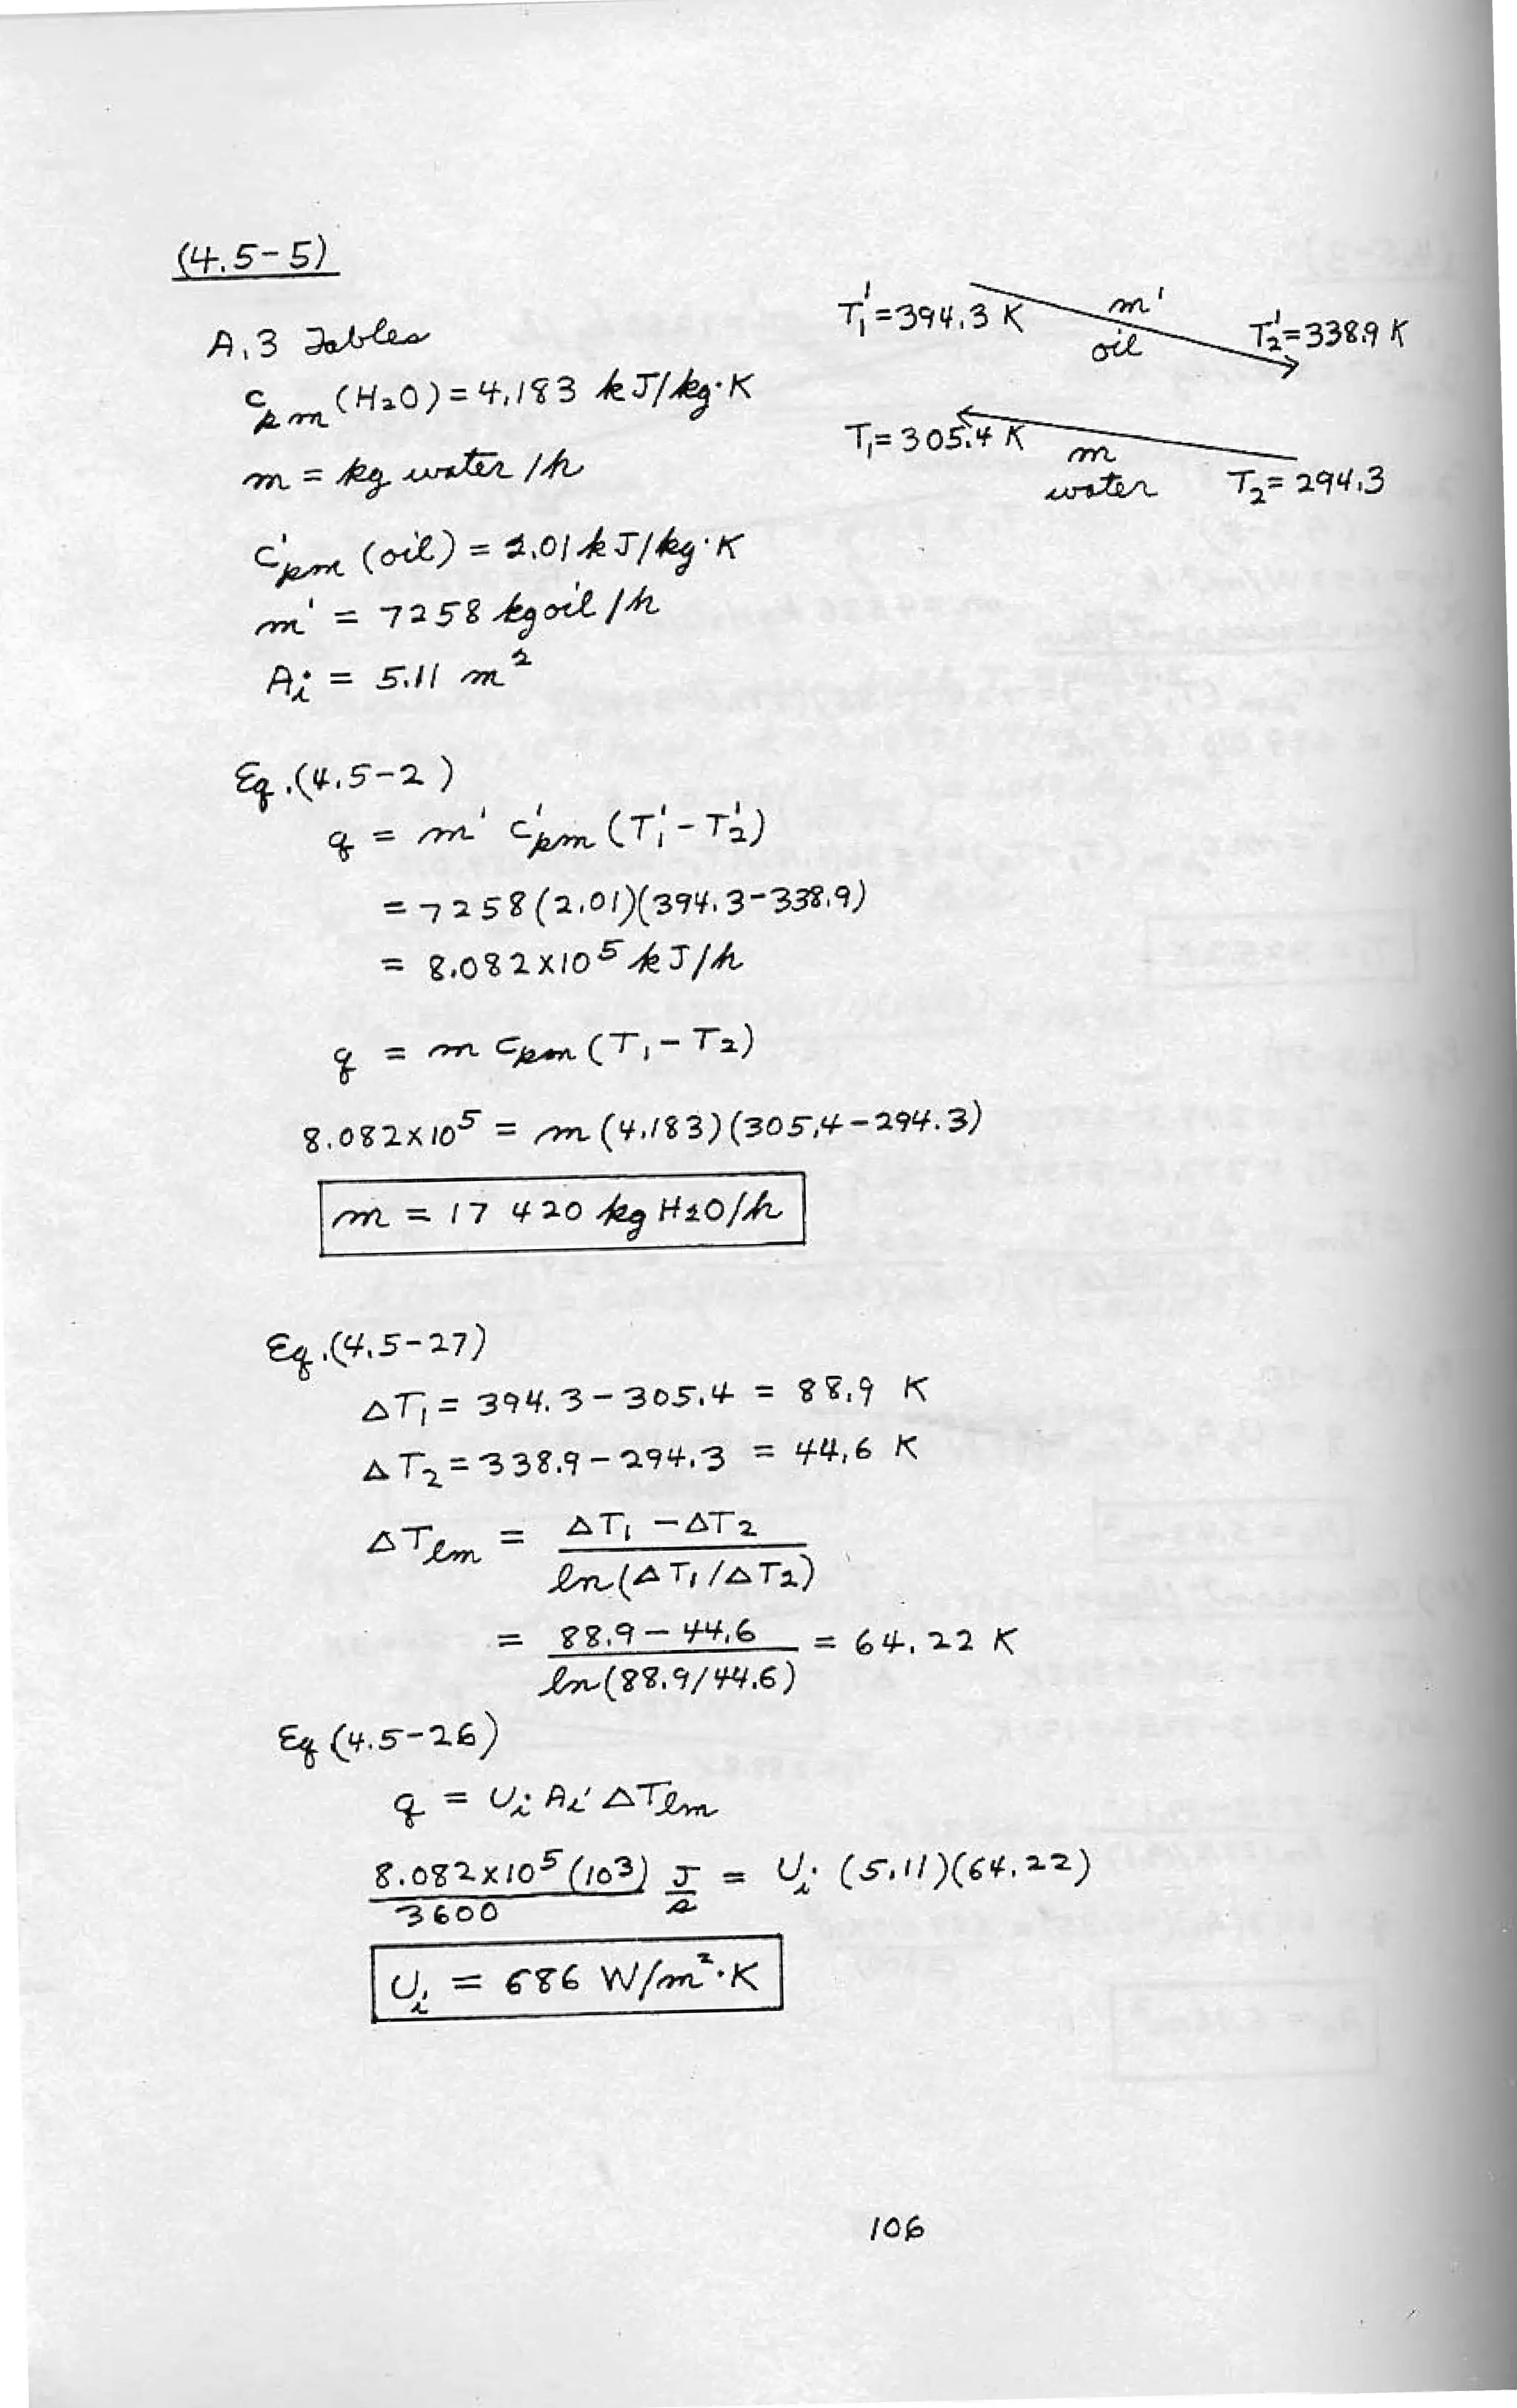 (4.5-5)
T₁' = 394.3 K
m'
oil
T₂' = 338.9 K
T₁ = 305.4 K
m
water
T₂ = 294.3
A.3 Tables
cpm (H₂O) = 4.183 kJ/kg·K
m = kg water /h
c'pm (oil) = 2.01 kJ/kg·K
m' = 7258 kg oil /h
Ai = 5.11 m²
Eq. (4.5-2)
q = m' c'pm (T₁' - T₂')
= 7258 (2.01)(394.3-338.9)
= 8.082 x 10⁵ kJ/h
q = m cpm (T₁ - T₂)
8.082 x 10⁵ = m (4.183)(305.4-294.3)
m = 17 420 kg H₂O/h
Eq. (4.5-27)
ΔT₁ = 394.3 - 305.4 = 88.9 K
ΔT₂ = 338.9 - 294.3 = 44.6 K
ΔTlm = ΔT₁ - ΔT₂ / ln(ΔT₁/ΔT₂)
= 88.9 - 44.6 / ln(88.9/44.6) = 64.22 K
Eq (4.5-26)
q = Ui Ai ΔTlm
8.082 x 10⁵ (10³) / 3600 J/s = Ui (5.11)(64.22)
Ui = 686 W/m²·K
106